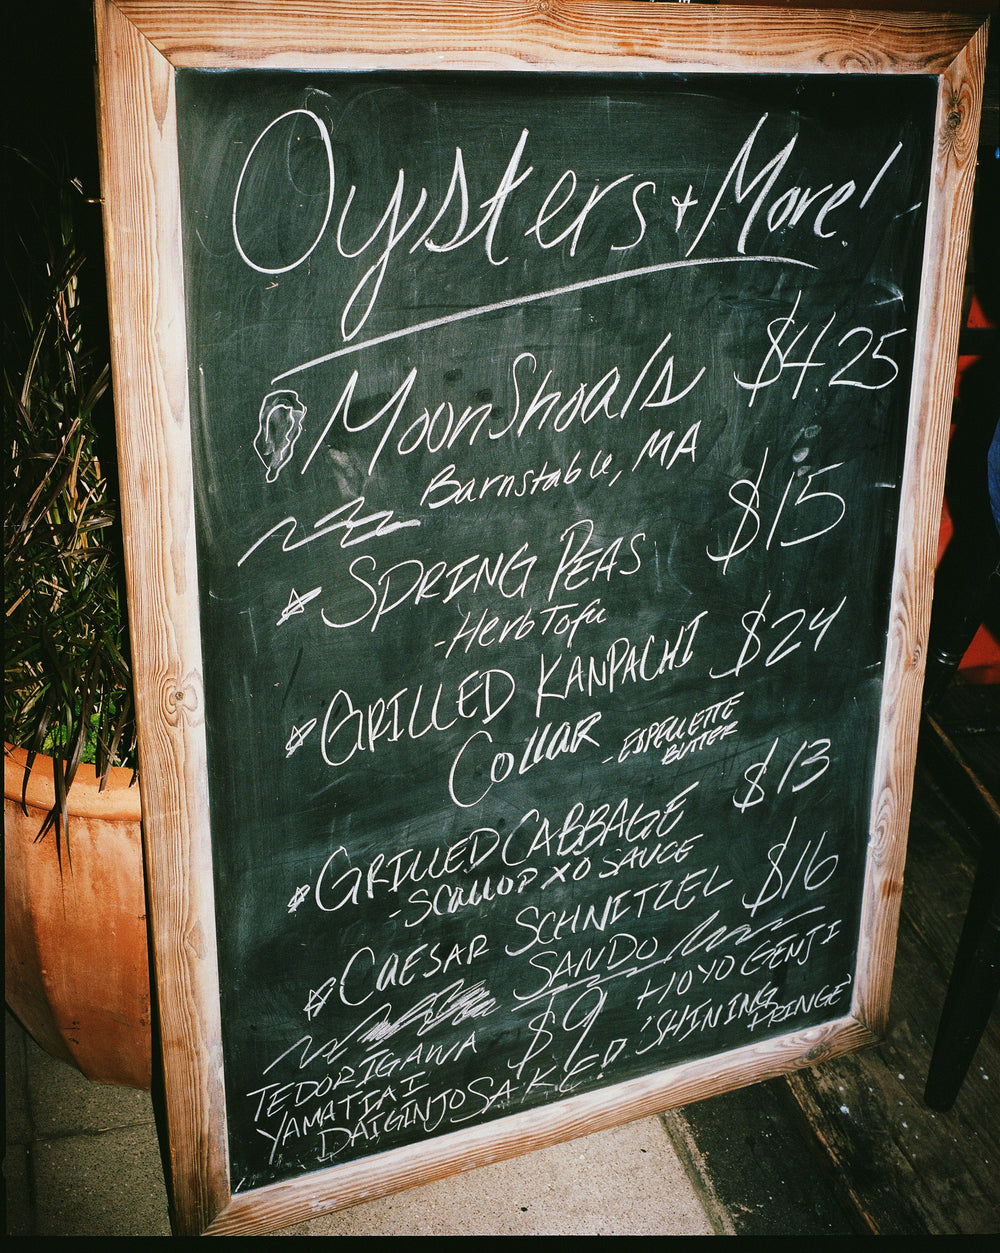 Oysters + More!
MoonShoals $4.25
Barnstable, MA
SPRING PEAS $15
-Herb Tofu
GRILLED KANPACHI $24
COLLAR -ESPELLETTE
BUTTER
GRILLED CABBAGE $13
-SCALLOP XO SAUCE
CAESAR SCHNITZEL $16
SANDO
TEDORIGAWA $9 HOYO GENJI
YAMATIAI 'SHINING
DAIGINJO SAKE! FRINGE'